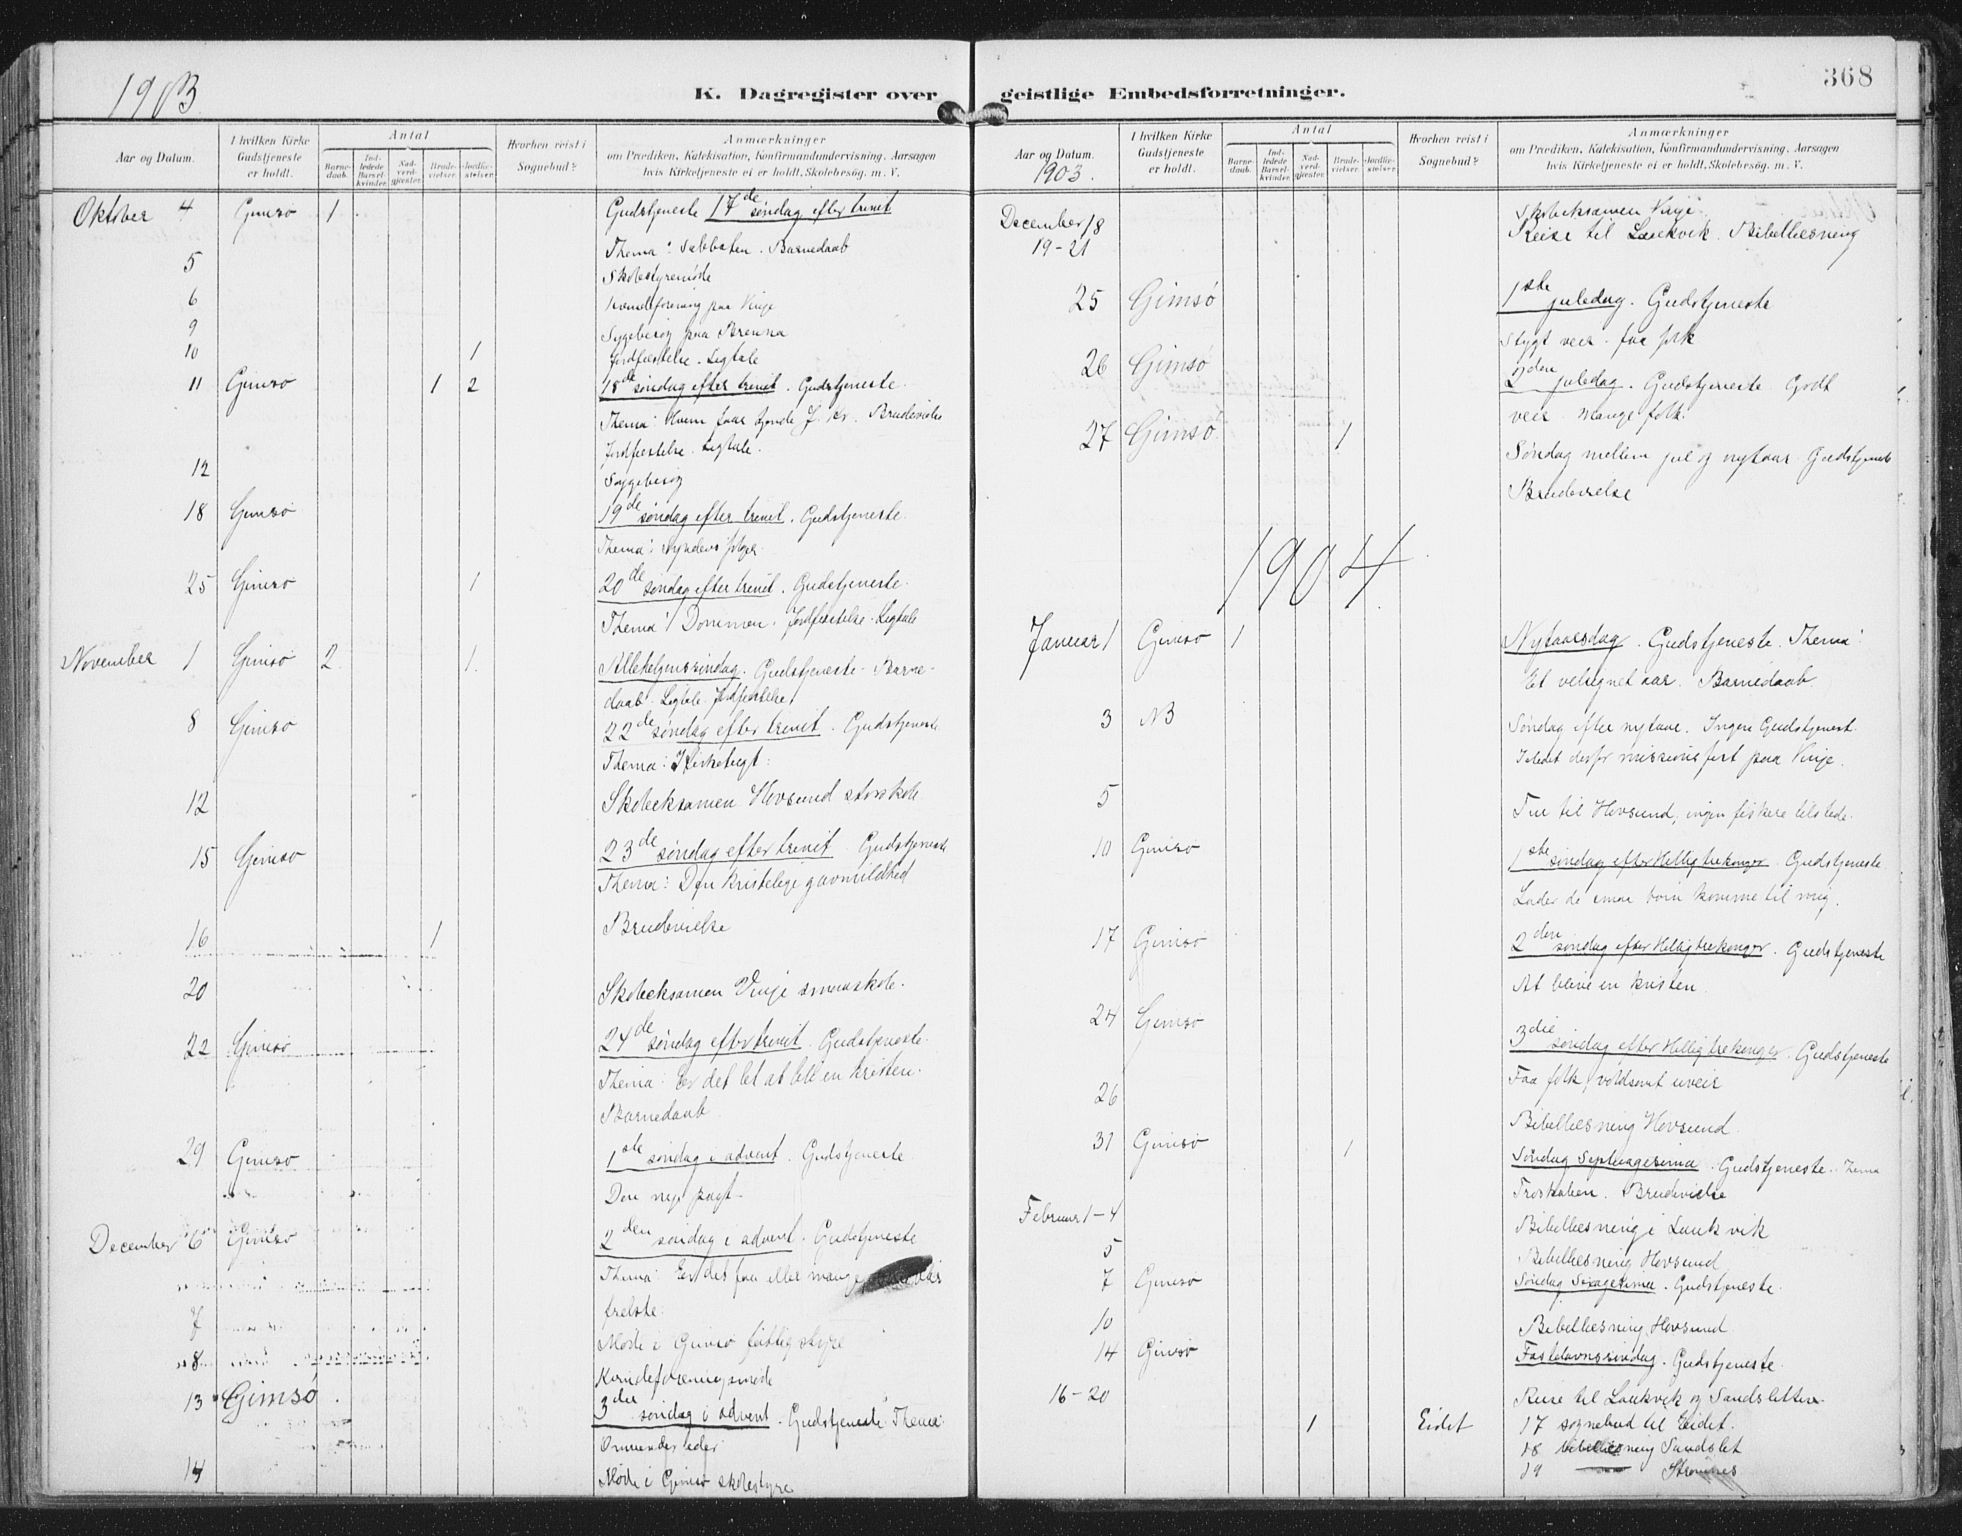 1903
K. Dagregister over
Aar og Datum.
I hvilken Kirke Gudstjeneste er holdt.
Antal
Barnedaab.
Indledede Barselkvinder.
Nadverdgjester.
Brudevielser.
Jordfæstelser.
Hvorhen reist i Sognebud?
Anmærkninger
om Prædiken, Katekisation, Konfirmandundervisning, Aarsagen
hvis Kirketjeneste ei er holdt, Skolebesøg, m. V.
Oktober 4 Gimsø 1 Gudstjeneste 17de søndag efter trinit
Thema: Sabbaten. Barnedaab
5 Skolestyremøde
6 Kvindeforening paa Vinje
9 Sygebesøg paa Brenna
10 1 Jordfæstelse. Ligtale
11 Gimsø 1 2 18de søndag efter trinit. Gudstjeneste.
Thema: Hvem faar kjende J. Kr. Brudevielse
Jordfæstelse. Ligtale.
12 Sygebesøg
18 Gimsø 19de søndag efter trinit. Gudstjeneste.
Thema: Syndens følger.
25 Gimsø 1 20de søndag efter trinit. Gudstjeneste.
Thema: Dommen. Jordfæstelse. Ligtale
November 1 Gimsø 2 1 Allehelgenssøndag. Gudstjeneste - Barne-
daab. Ligtale. Jordfæstelse
8 Gimsø 22de søndag efter trinit. Gudstjeneste
Thema: Kirketugt:
12 Skoleeksamen Hovsund storskole
15 Gimsø 23de søndag efter trinit. Gudstjeneste
Thema: Den kristelige gavmildhed
16 1 Brudevielse
20 Skoleeksamen Vinje smaaskole.
22 Gimsø 24de søndag efter trinit. Gudstjeneste.
Thema: Er det let at bli en kristen.
Barnedaab
29 Gimsø 1ste søndag i advent. Gudstjeneste
Den nye pagt.
December 6 Gimsø 2den søndag i advent. Gudstjeneste
Thema: Er det faa eller mange
frelste:
7 Møde i Gimsø fattigstyre
8 Kvindeforeningsmøde
13 Gimsø 3die søndag i advent. Gudstjeneste Thema:
14 Møde i Gimsø skolestyre
geistlige Embedsforretninger.
368
Aar og Datum.
1903.
I hvilken Kirke Gudstjeneste er holdt.
Antal
Barnedaab.
Indledede Barselkvinder.
Nadverdgjester.
Brudevielser.
Jordfæstelser.
Hvorhen reist i Sognebud?
Anmærkninger
om Prædiken, Katekisation, Konfirmandundervisning, Aarsagen
hvis Kirketjeneste ei er holdt, Skolebesøg, m. V.
December 18 Skoleeksamen Vinje.
19-21 Reise til Laukvik. Bibellæsning
25 Gimsø 1ste juledag. Gudstjeneste
Stygt veir. faa folk
26 Gimsø 2den juledag. Gudstjeneste Godt
veir. Mange folk.
27 Gimsø 1 Søndag mellem jul og nytaar Gudstjeneste
Brudevielse
1904.
Januar 1 Gimsø 1 Nytaarsdag. Gudstjeneste. Thema:
Et velsignet aar. Barnedaab.
3 NB Søndag efter nytaar. Ingen Gudstjenest.
Istedet derfor missionsfest paa Vinje.
5 Tur til Hovsund, ingen fiskere tilstede.
10 Gimsø 1ste søndag efter Hellig trekonger. Gudstjeneste
Lader de smaa børn komme til mig.
17 Gimsø 2den søndag efter Hellig trekonger. Gudstjeneste
At blive en kristen
24 Gimsø 3die søndag efter Hellig trekonger. Gudstjeneste
Faa folk, voldsomt uveir
26 Bibellæsning Hovsund
31 Gimsø 1 Søndag Septuagesima. Gudstjeneste. Thema
Troskaben. Brudevielse
Februar 1-4 Bibellæsning i Laukvik
5 Bibellæsning Hovsund
7 Gimsø Søndag Sexagesima. Gudstjeneste.
10 Bibellæsning Hovsund
14 Gimsø Fastelavnssøndag. Gudstjeneste.
16-20 Reise til Laukvik og Sandsletten
1 Eidet 17 sognebud til Eidet.
18 bibellæsning Sandslet
19 — Strømnes